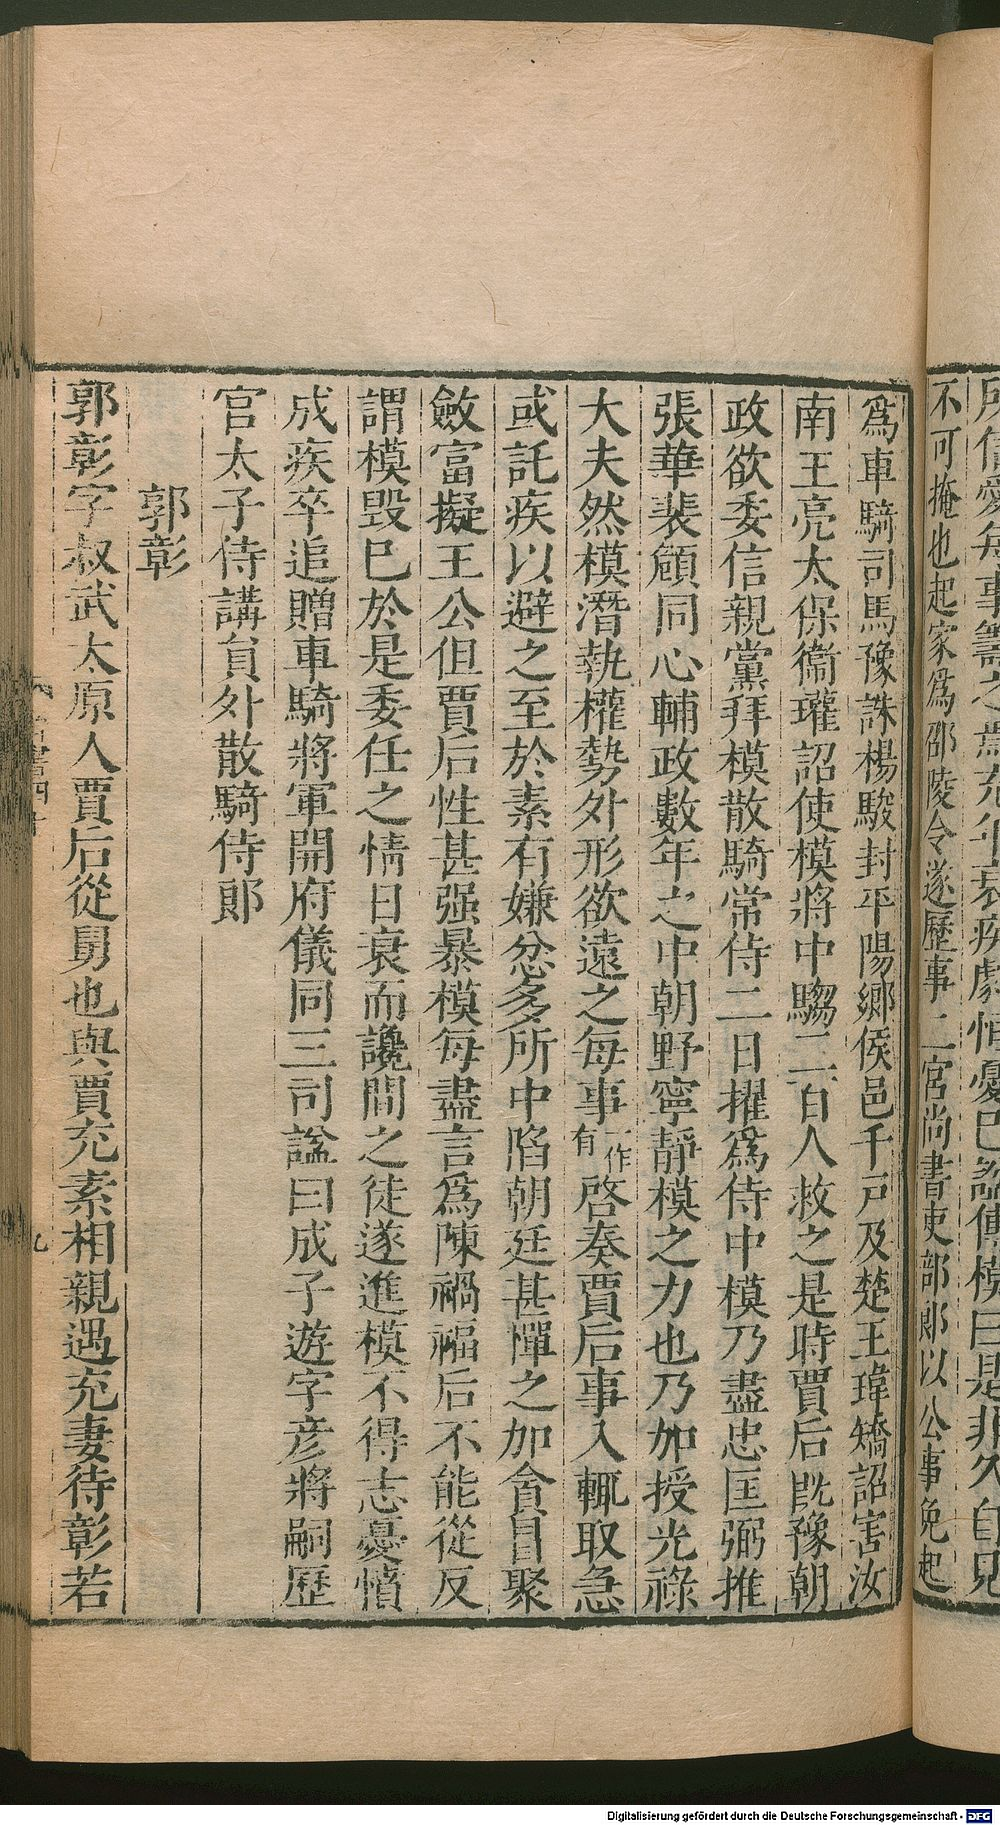 所信愛每事籌之焉充年衰疾劇恒憂己謚傳模曰是非久自見
不可掩也起家爲邵陵令遂歷事二宮尚書吏部郎以公事免起
爲車騎司馬豫誅楊駿封平陽鄉侯邑千戸及楚王瑋矯詔害汝
南王亮太保衞瓘詔使模將中騶二百人救之是時賈后旣豫朝
政欲委信親黨拜模散騎常侍二日擢爲侍中模乃盡忠匡弼推
張華裴頠同心輔政數年之中朝野寧靜模之力也乃加授光祿
大夫然模潛執權勢外形欲遠之每事一作有啓奏賈后事入輒取急
或託疾以避之至於素有嫌忿多所中陷朝廷甚憚之加貪冒聚
斂富擬王公但賈后性甚强暴模每盡言爲陳禍福后不能從反
謂模毀巳於是委任之情日衰而讒間之徒遂進模不得志憂憤
成疾卒追贈車騎將軍開府儀同三司諡曰成子遊字彦將嗣歷
官太子侍講員外散騎侍郎
郭彰
郭彰字叔武太原人賈后從舅也與賈充素相親遇充妻待彰若
書四十
九
Digitalisierung gefördert durch die Deutsche Forschungsgemeinschaft - DFG